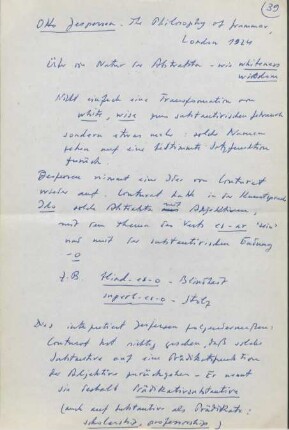 39
Otto Jespersen. The Philosophy of Grammar,
London 1924
Über die Natur der Abstrakta – wie whiteness
wisdom
Nicht einfach eine Transformation von
white, wise zum substantivischen Gebrauch
sondern etwas mehr: solche Namen
gehen auf eine bestimmte Satzfunktion
zurück.
Jespersen nimmt eine Idee von Couturat
wieder auf. Couturat hatte in der Kunstsprache
Ido solche Abstrakta mit Adjektiven,
mit dem Thema des Verbs es-ar "sein"
und mit der substantivischen Endung
-o
z.B blind-es-o - Blindheit
superb-es-o - Stolz
Dies interpretiert Jespersen folgendermaßen:
Couturat hat richtig gesehen, daß solche
Substantive auf eine Prädikatsfunktion
der Adjektive zurückgehen - Er nennt
sie deshalb Prädikativsubstantive
(auch auf Substantive als Prädikate:
scholarship, professorship)